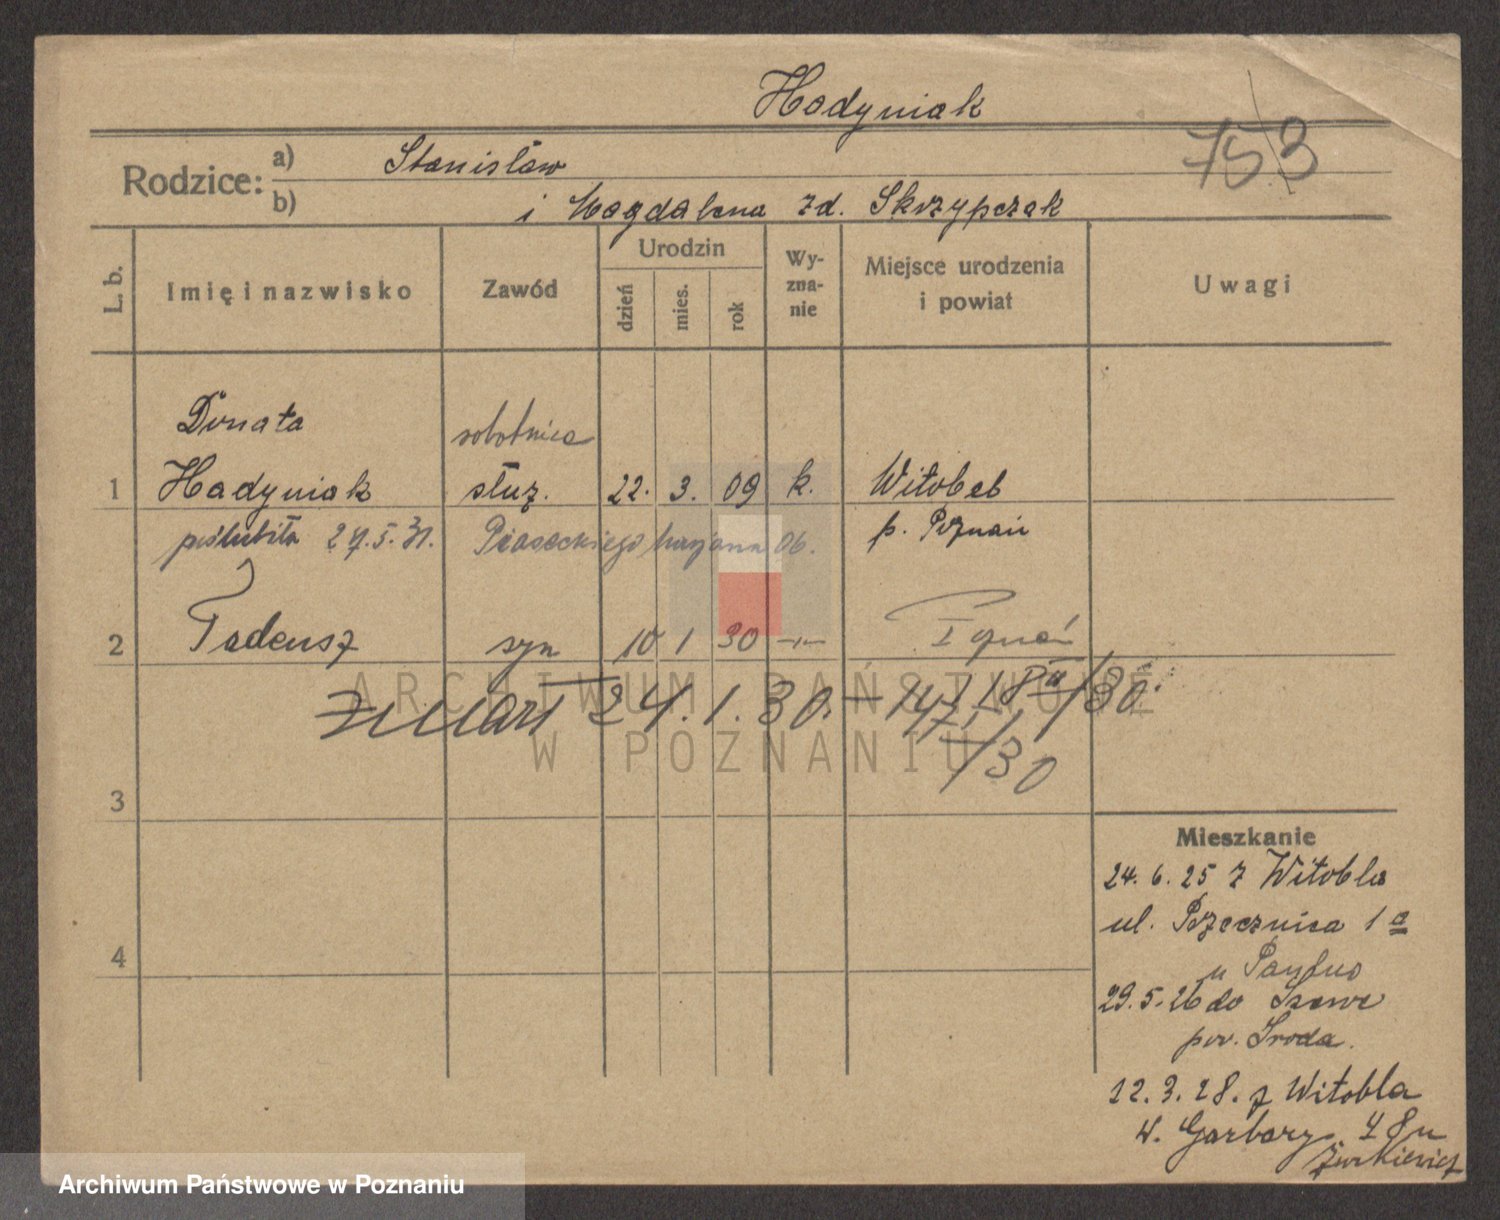 Hadyniak
753
Rodzice:
a) Stanisław
b) i Magdalena zd. Skrzypczak
L. b.
Imię i nazwisko
Zawód
Urodzin
dzień
mies.
rok
Wy-
zna-
nie
Miejsce urodzenia
i powiat
Uwagi
Donata robotnica
1 Hadyniak służ. 22. 3. 09 k. Witobel
poślubiła 27.5.31. Piaseckiego Maryana 06. p. Poznań
2 Tadeusz syn 10 1 30 -"- Poznań
zmarł 24.1.30.
/30
ARCHIWUM PAŃSTWOWE
W POZNANIU
3
4
Mieszkanie
24. 6. 25 z Witobla
ul. Przecznica 1 a
u
29.5.26 do
pow. Środa.
12. 3. 28. z Witobla
Garbary 48 u
Żurkiewicz
Archiwum Państwowe w Poznaniu